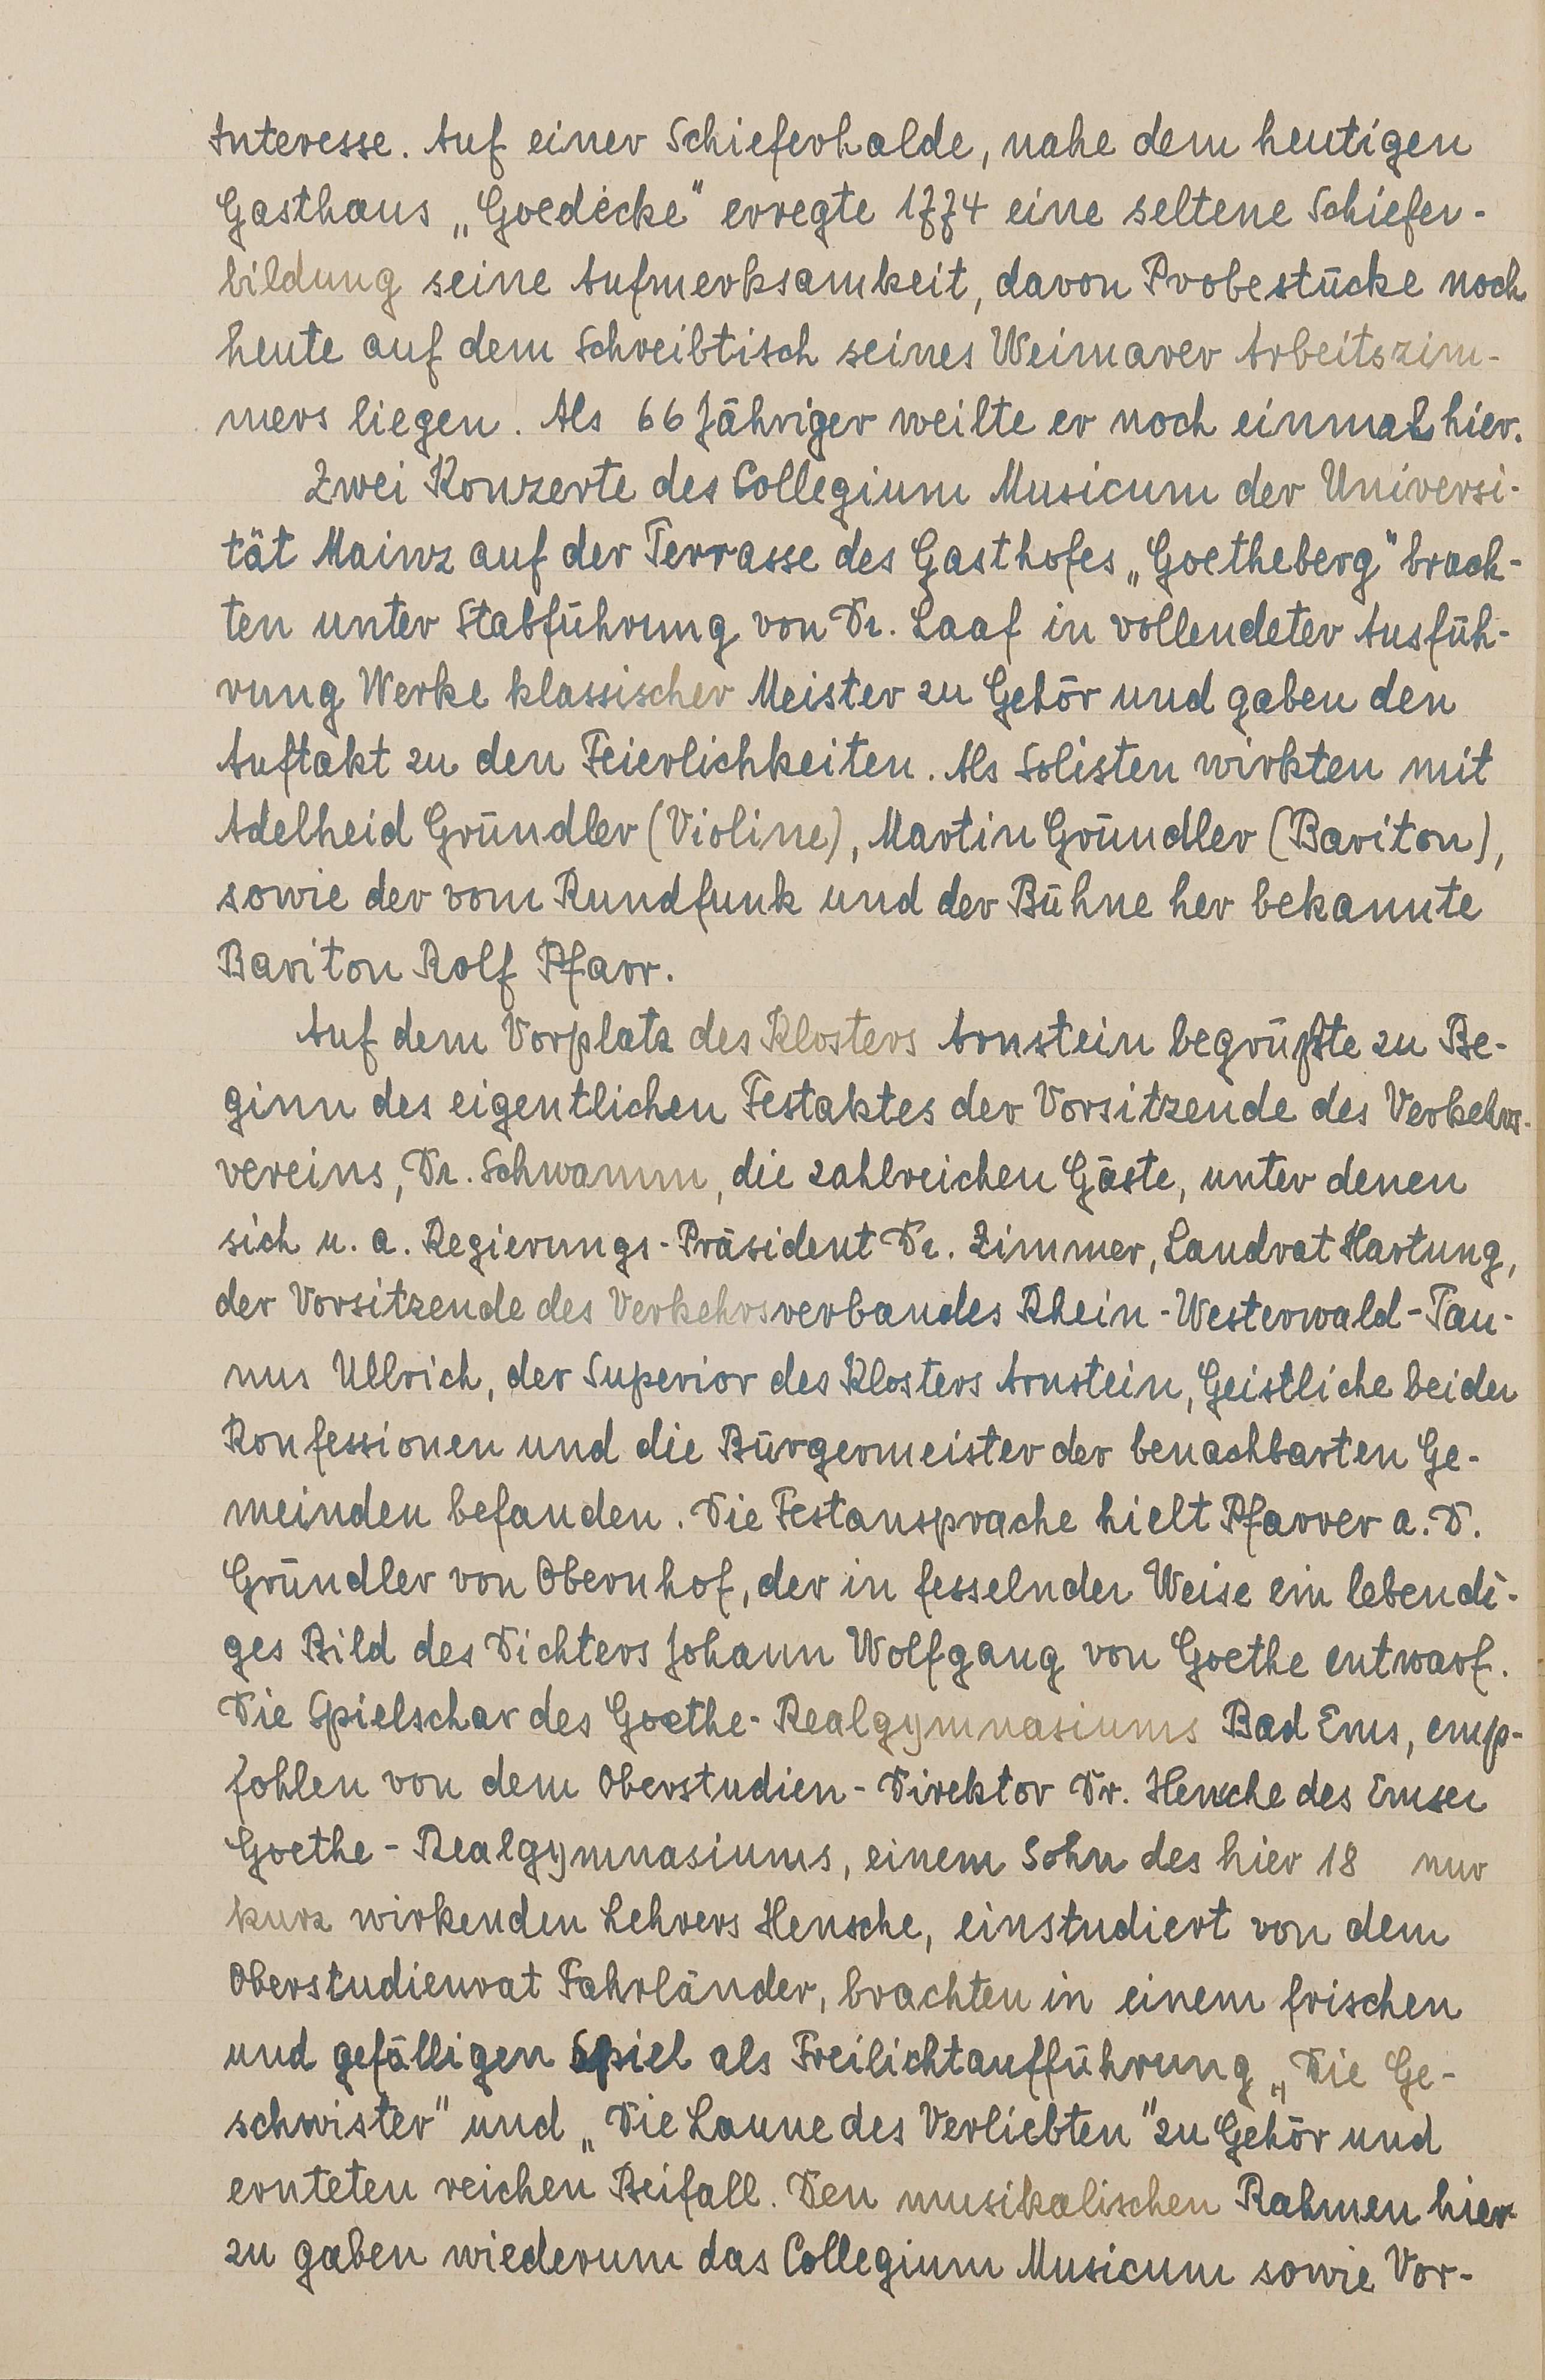 Interesse. Auf einer Schieferhalde, nahe dem heutigen
Gasthaus „Goedecke" erregte 1774 eine seltene Schiefer-
bildung seine Aufmerksamkeit, davon Probestücke noch
heute auf dem Schreibtisch seines Weimarer Arbeitszim-
mers liegen. Als 66 Jähriger weilte er noch einmal hier.
Zwei Konzerte des Collegium Musicum der Universi-
tät Mainz auf der Terrasse des Gasthofes „Goetheberg" brach-
ten unter Stabführung von Dr. Laaf in vollendeter Ausfüh-
rung Werke klassischer Meister zu Gehör und gaben den
Auftakt zu den Feierlichkeiten. Als Solisten wirkten mit
Adelheid Gründler (Violine), Martin Gründler (Bariton),
sowie der vom Rundfunk und der Bühne her bekannte
Bariton Rolf Pfarr.
Auf dem Vorplatz des Klosters Arnstein begrüßte zu Be-
ginn des eigentlichen Festaktes der Vorsitzende des Verkehrs-
vereins, Dr. Schwamm, die zahlreichen Gäste, unter denen
sich u. a. Regierungs-Präsident Dr. Zimmer, Landrat Hartung,
der Vorsitzende des Verkehrsverbandes Rhein-Westerwald-Tau-
nus Ullrich, der Superior des Klosters Arnstein, Geistliche beider
Konfessionen und die Bürgermeister der benachbarten Ge-
meinden befanden. Die Festansprache hielt Pfarrer a. D.
Gründler von Obernhof, der in fesselnder Weise ein lebendi-
ges Bild des Dichters Johann Wolfgang von Goethe entwarf.
Die Spielschar des Goethe-Realgymnasiums Bad Ems, emp-
fohlen von dem Oberstudien-Direktor Dr. Hensche des Emser
Goethe-Realgymnasiums, einem Sohn des hier 18 nur
kurz wirkenden Lehrers Hensche, einstudiert von dem
Oberstudienrat Fahrländer, brachten in einem frischen
und gefälligen Spiel als Freilichtaufführung „Die Ge-
schwister" und „Die Laune des Verliebten" zu Gehör und
ernteten reichen Beifall. Den musikalischen Rahmen hier-
zu gaben wiederum das Collegium Musicum sowie Vor-